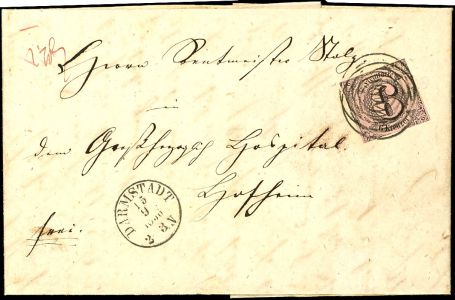 Herrn Rentmeister Stolz
in
dem Großherzogl. Hospital.
Hofheim
frei.
DARMSTADT
13
9
2 3N